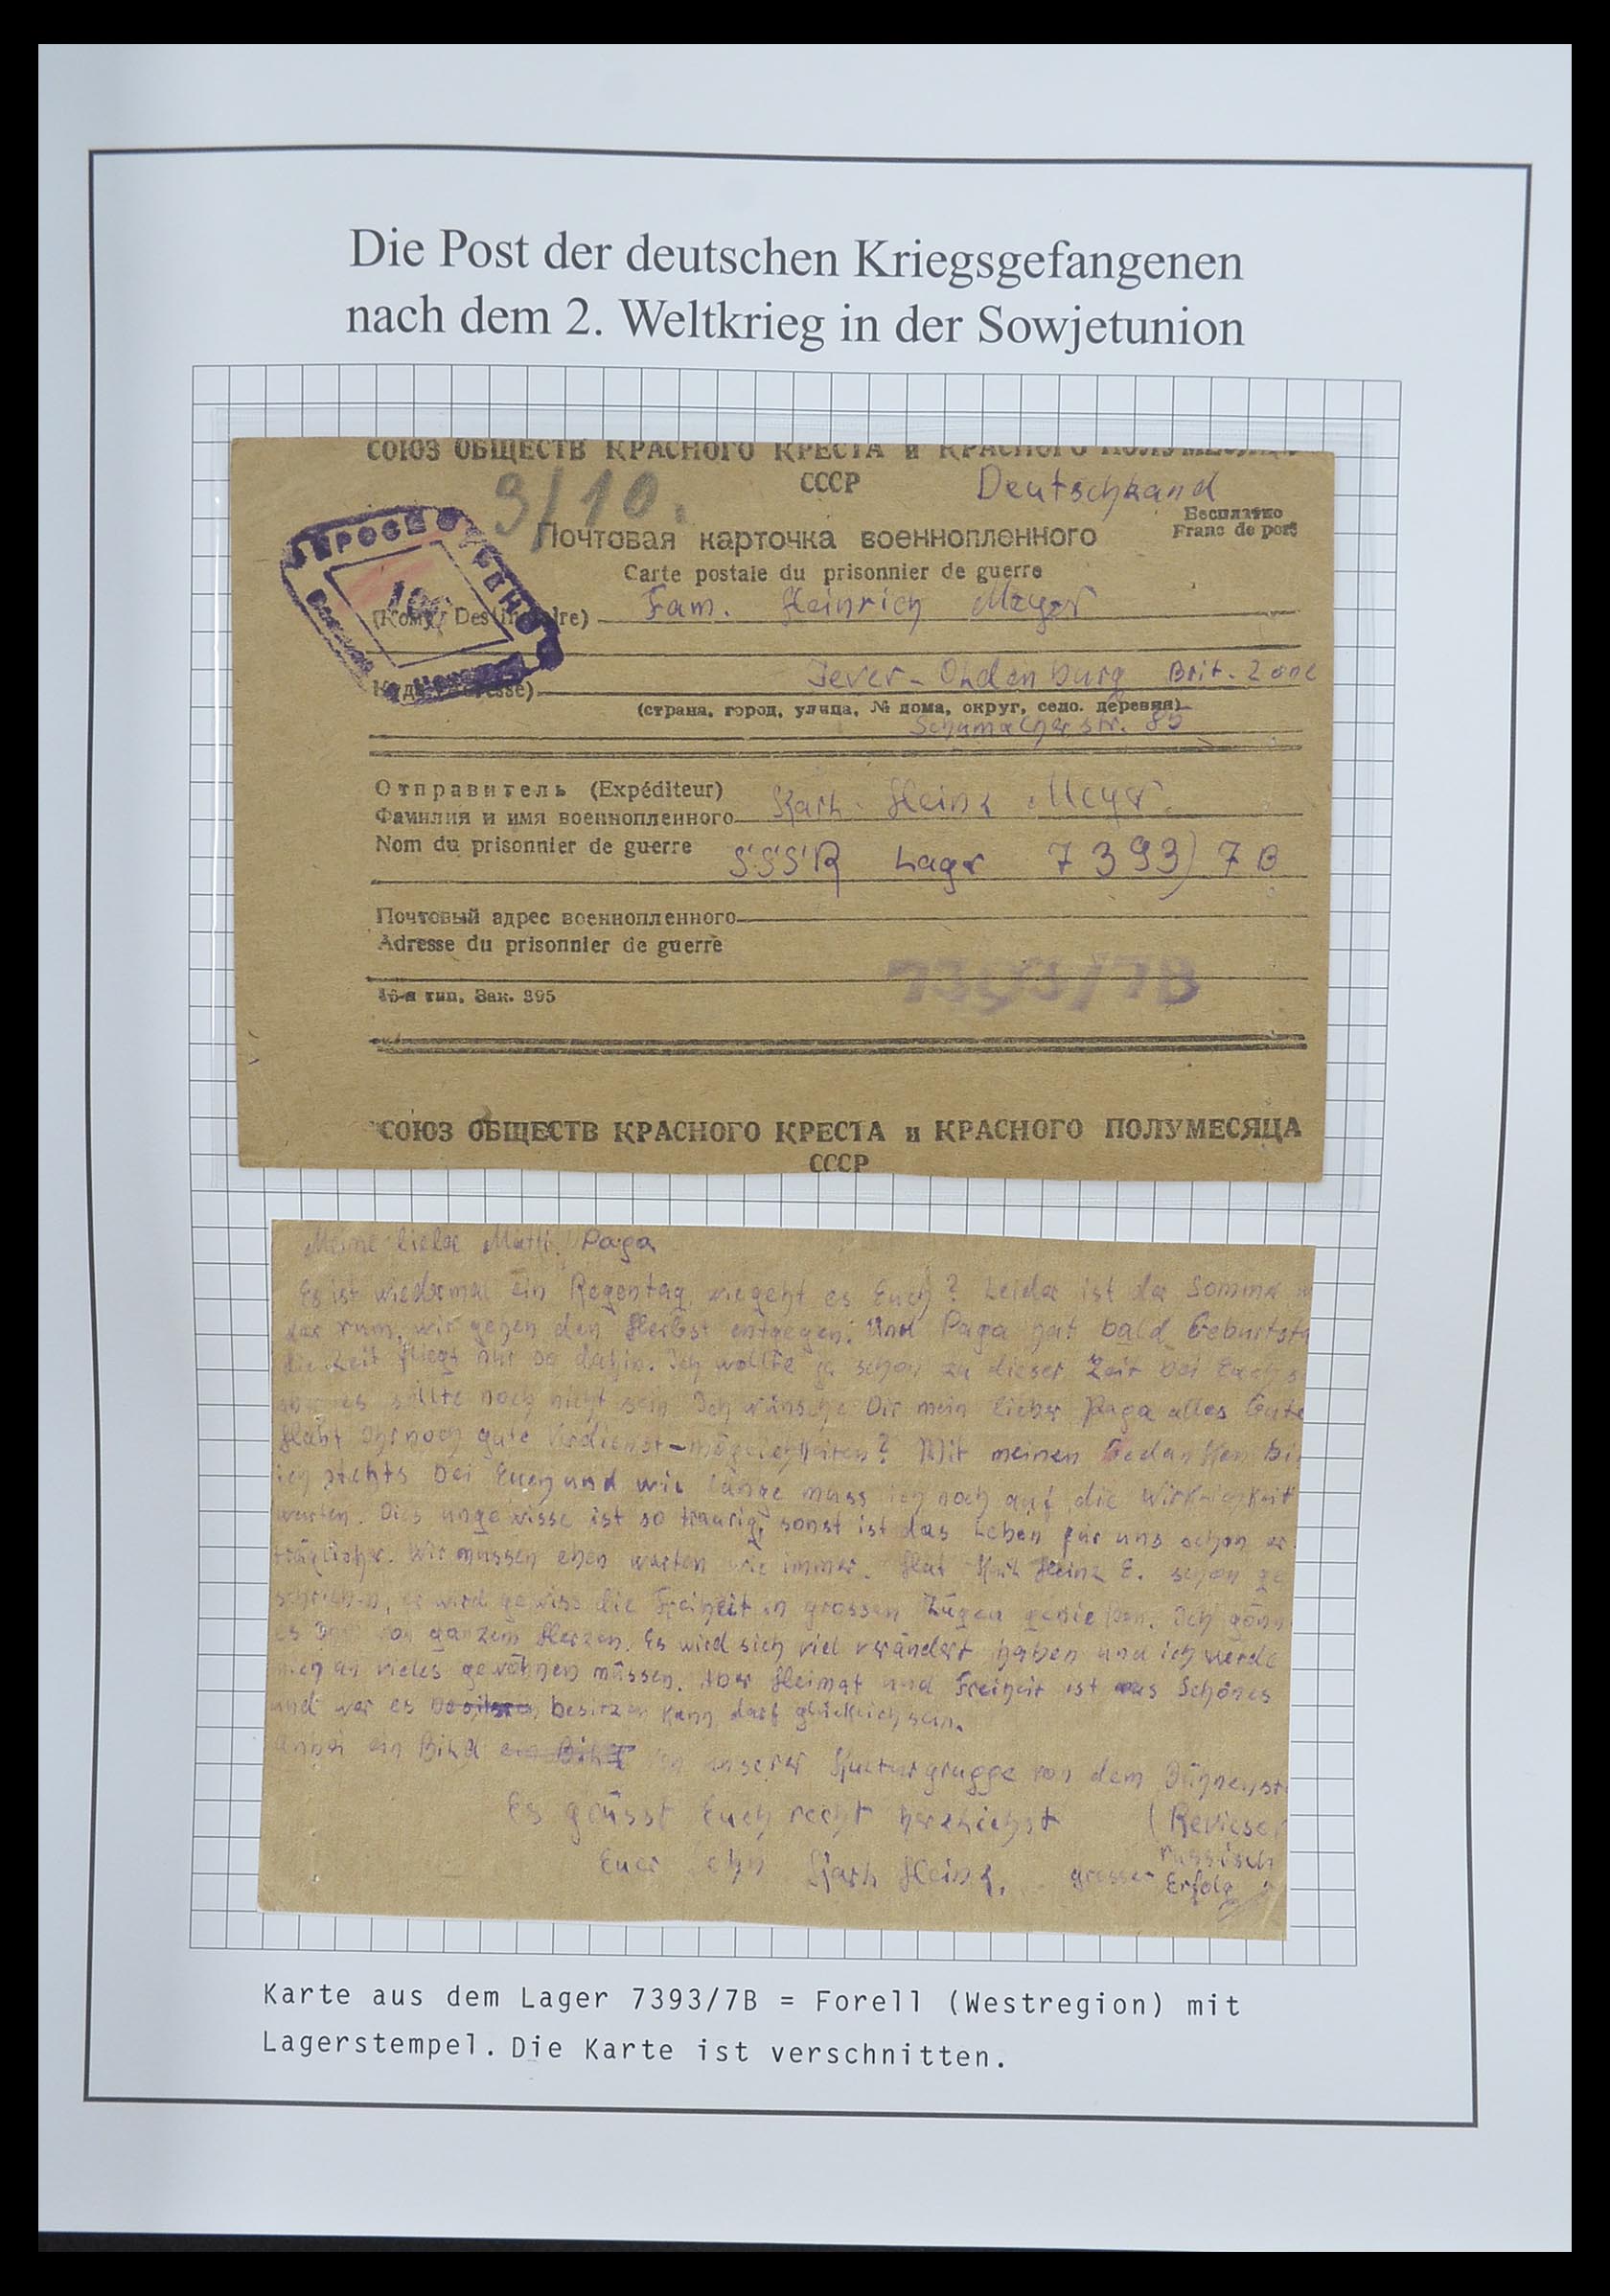 Die Post der deutschen Kriegsgefangenen
nach dem 2. Weltkrieg in der Sowjetunion
СОЮЗ ОБЩЕСТВ КРАСНОГО КРЕСТА и КРАСНОГО ПОЛУМЕСЯЦА
СССР
Deutschland
9/10.
Бесплатно
Franc de port
Почтовая карточка военнопленного
Carte postale du prisonnier de guerre
(Кому Destinataire) Fam. Heinrich Meyer
Jever-Oldenburg Brit. Zone
(страна, город, улица, № дома, округ, село, деревня)
Schumacherstr. 85
Отправитель (Expéditeur)
Фамилия и имя военнопленного Karl-Heinz Meyer.
Nom du prisonnier de guerre S'S'S'R Lager 7393/7B
Почтовый адрес военнопленного
Adresse du prisonnier de guerre
7393/7B
16-я тип, Зак. 395
СОЮЗ ОБЩЕСТВ КРАСНОГО КРЕСТА и КРАСНОГО ПОЛУМЕСЯЦА
СССР
Meine liebe Mutti, Papa
Es ist wiedermal ein Regentag, wiegeht es Euch? Leider ist der Sommer
rum, wir gehen den Herbst entgegen. Und Papa hat bald Geburtsta
die Zeit fliegt nur so dahin. Ich wollte ja schon zu dieser Zeit bei Euch s
es sollte noch nicht sein. Ich wünsche Dir mein lieber Papa alles Gute
Habt Ihr noch gute Verdienst-möglichkeiten? Mit meinen Gedanken bi
ich stehts bei Euch und wie lange muss ich noch auf die Wirklichkeit
warten. Dies ungewisse ist so traurig, sonst ist das Leben für uns schon er
träglicher. Wir müssen eben warten wie immer. Hat Karl Heinz E. schon ge
schrieben, er wird gewiss die Freiheit in grossen Zügen genießen. Ich gönn
es von ganzem Herzen. Es wird sich viel verändert haben und ich werde
mich an vieles gewöhnen müssen. Aber Heimat und Freiheit ist was Schönes
und wer es besitzen kann, darf glücklich sein.
Anbei ein Bild von unserer Kulturgruppe von dem Bühnenst
Es grüsst Euch recht herzlichst
(Reviesor
Euer Sohn Karl Heinz.
russisch
grosser Erfolg
Karte aus dem Lager 7393/7B = Forell (Westregion) mit
Lagerstempel. Die Karte ist verschnitten.